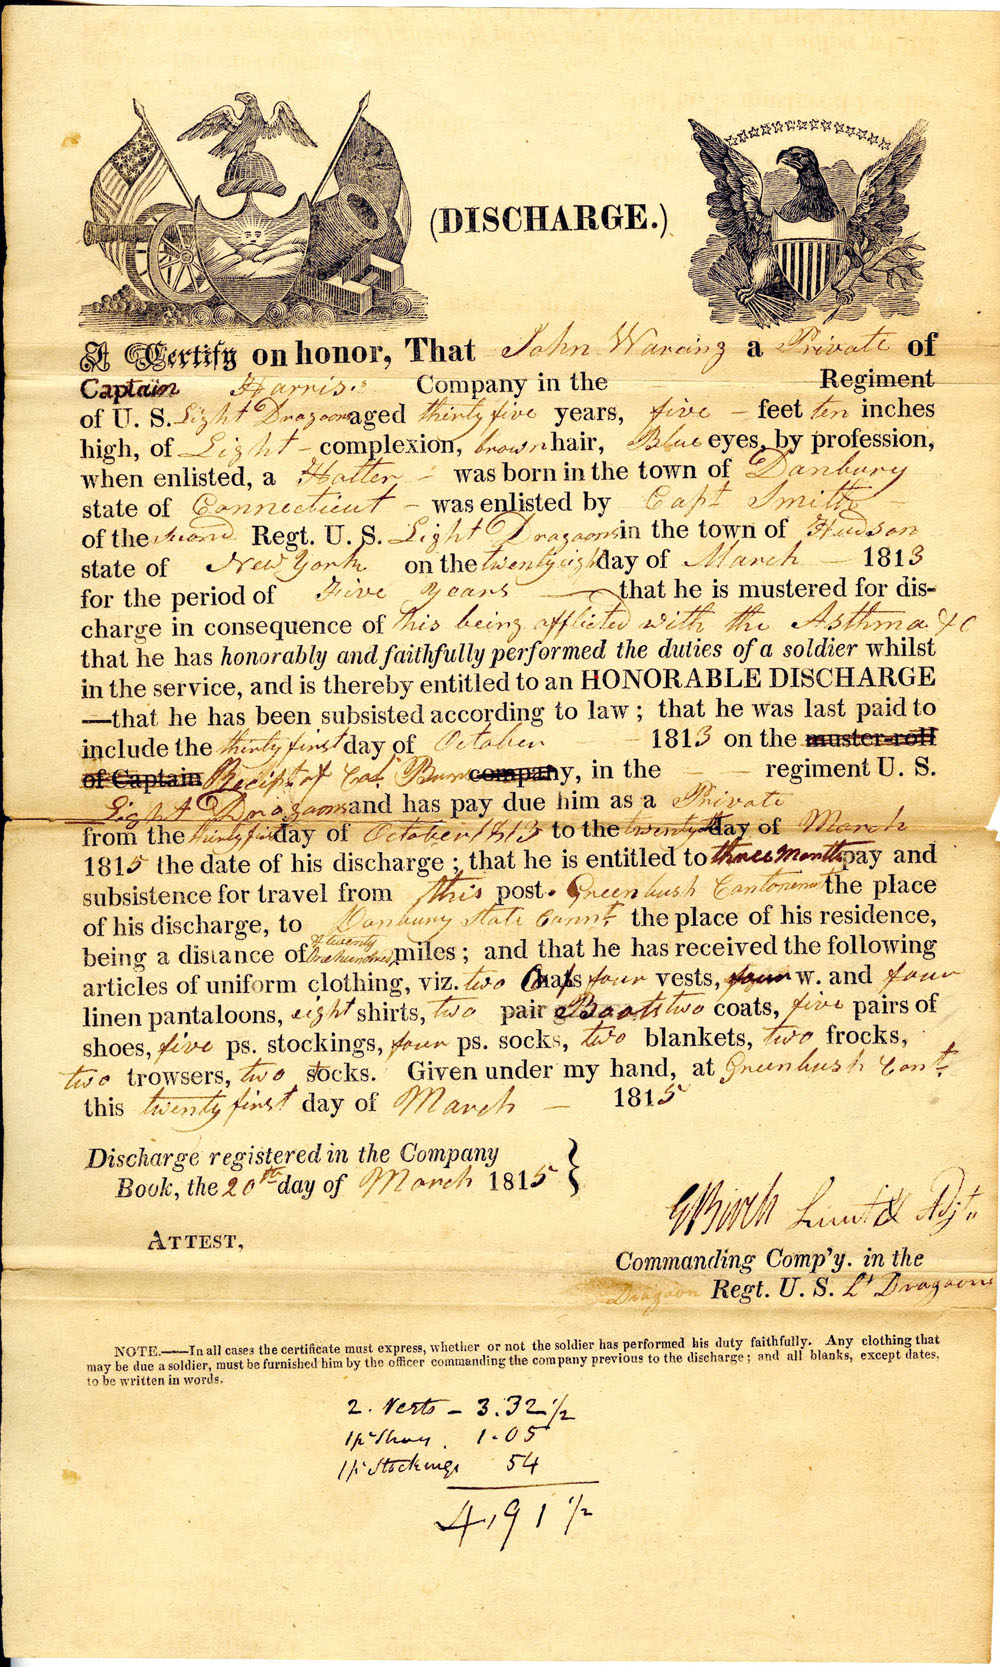 (DISCHARGE.)
I Certify on honor, That John Waring a Private of
Captain Harris's Company in the Regiment
of U. S. Light Dragoons aged thirty five years, five feet ten inches
high, of Light complexion, brown hair, Blue eyes, by profession,
when enlisted, a Hatter was born in the town of Danbury
state of Connecticut was enlisted by Capt Smith
of the second Regt. U. S. Light Dragoons in the town of Hudson
state of New York on the twenty eigh day of March 1813
for the period of Five Years that he is mustered for dis-
charge in consequence of his being afflicted with the Asthma &c
that he has honorably and faithfully performed the duties of a soldier whilst
in the service, and is thereby entitled to an HONORABLE DISCHARGE
—that he has been subsisted according to law; that he was last paid to
include the thirty first day of October 1813 on the muster-roll
of Captain Receipt of Col Burns company, in the regiment U. S.
Light Dragoons and has pay due him as a Private
from the thirty first day of October 1813 to the twenty day of March
1815 the date of his discharge; that he is entitled to three months pay and
subsistence for travel from this post. Greenbush Cantonment the place
of his discharge, to Danbury State Connt. the place of his residence,
being a distance of One hundred & twenty miles; and that he has received the following
articles of uniform clothing, viz. two four vests, four w. and four
linen pantaloons, eight shirts, two pair Boots two coats, five pairs of
shoes, five ps. stockings, four ps. socks, two blankets, two frocks,
two trowsers, two stocks. Given under my hand, at Greenbush Cont.
this twenty first day of March 1815
Discharge registered in the Company
Book, the 20th day of March 1815
GBirch Lieut & Adjt.
ATTEST,
Commanding Comp'y. in the
Dragoon Regt. U. S. Lt Dragoons
NOTE.—In all cases the certificate must express, whether or not the soldier has performed his duty faithfully. Any clothing that
may be due a soldier, must be furnished him by the officer commanding the company previous to the discharge; and all blanks, except dates,
to be written in words.
2. Vests – 3.32 1/2
1 pr Shoes . 1.05
1 pr Stockings 54
4,91 1/2